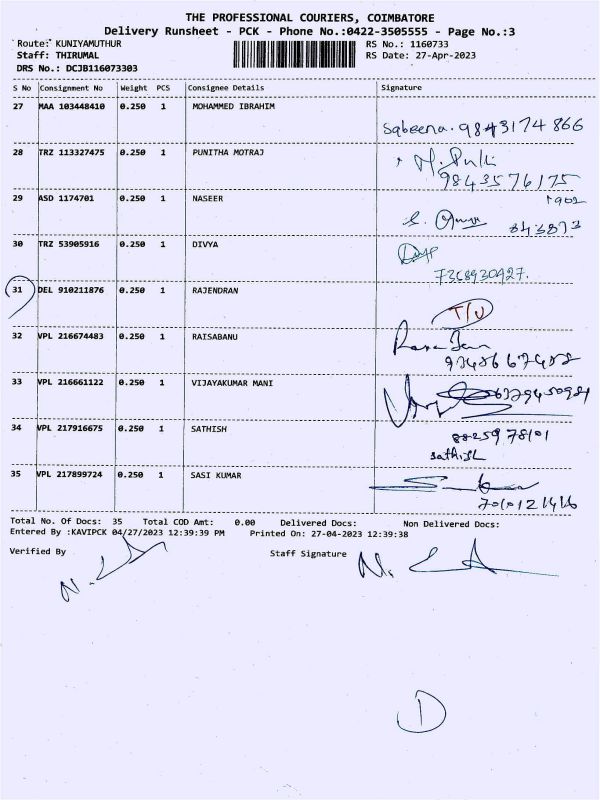 THE PROFESSIONAL COURIERS, COIMBATORE
Delivery Runsheet - PCK - Phone No.:0422-3505555 - Page No.:3
Route: KUNIYAMUTHUR RS No.: 1160733
Staff: THIRUMAL RS Date: 27-Apr-2023
DRS No.: DCJB116073303
S No Consignment No Weight PCS Consignee Details Signature
27 MAA 103448410 0.250 1 MOHAMMED IBRAHIM
Sabeena. 9843174866
28 TRZ 113327475 0.250 1 PUNITHA MOTRAJ
9843576175
29 ASD 1174701 0.250 1 NASEER
30 TRZ 53905916 0.250 1 DIVYA
7368930427.
31 DEL 910211876 0.250 1 RAJENDRAN
32 VPL 216674483 0.250 1 RAISABANU
33 VPL 216661122 0.250 1 VIJAYAKUMAR MANI
34 VPL 217916675 0.250 1 SATHISH
8825978101
Sathish
35 VPL 217899724 0.250 1 SASI KUMAR
Total No. Of Docs: 35 Total COD Amt: 0.00 Delivered Docs: Non Delivered Docs:
Entered By :KAVIPCK 04/27/2023 12:39:39 PM Printed On: 27-04-2023 12:39:38
Verified By Staff Signature
D